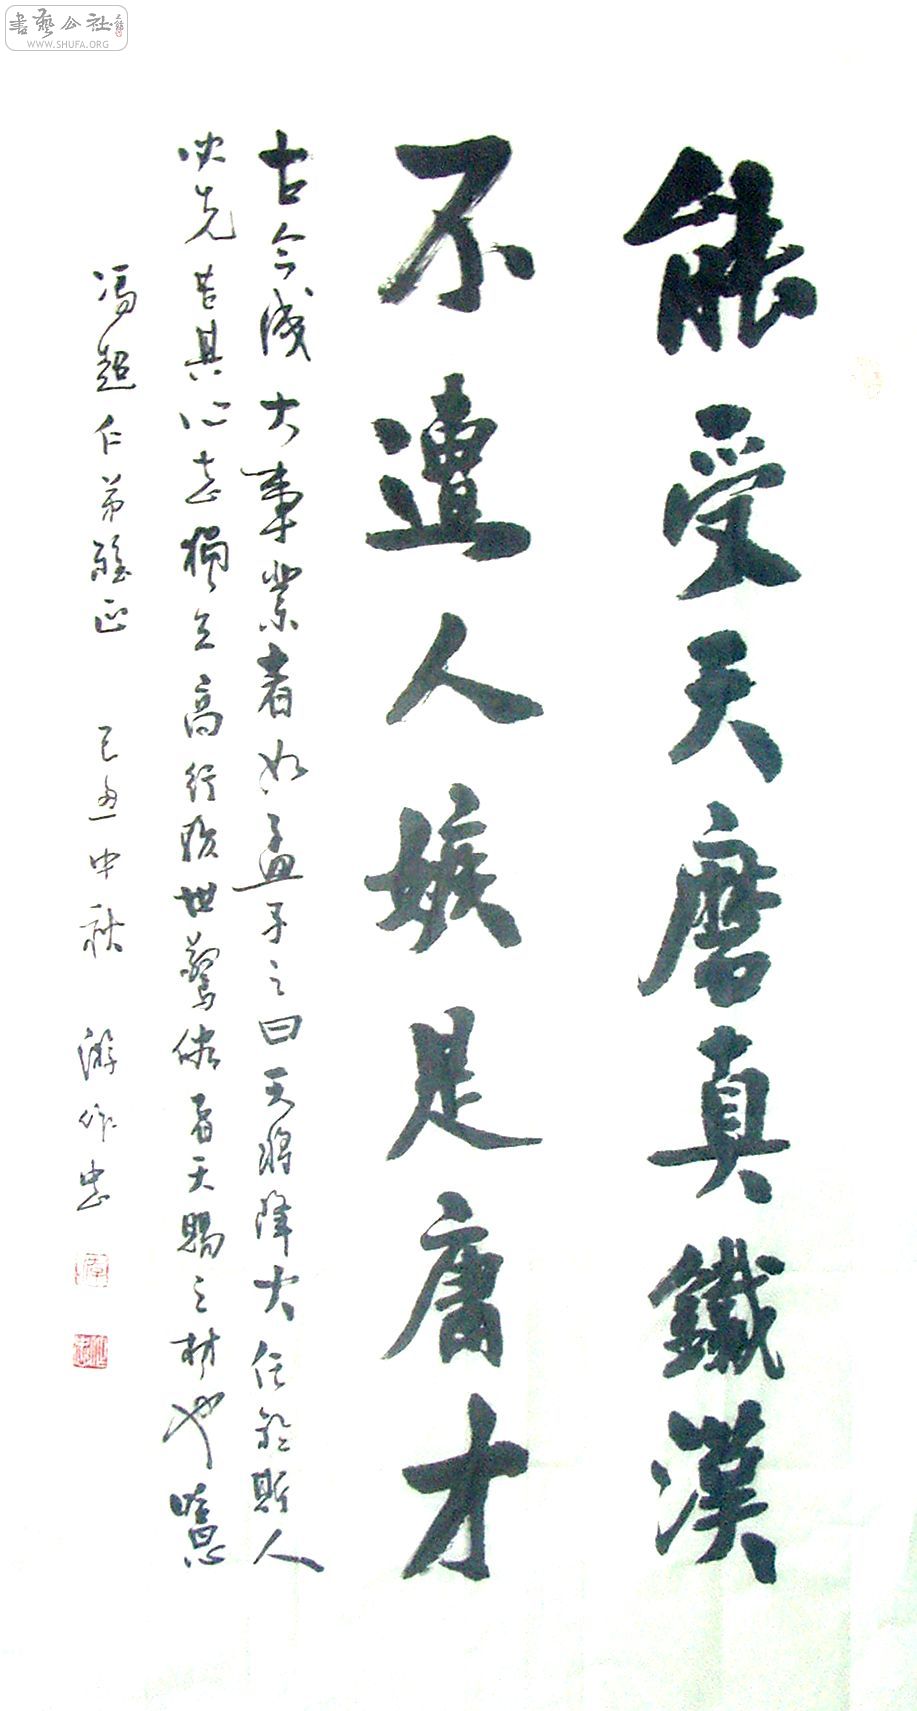 能受天磨真鐵漢
不遭人嫉是庸才
古今成大事業者如孟子之曰天將降大任於斯人
必先苦其心志獨立高行 世驚俗 天賜之材也
馮超仁弟雅正 己丑中秋 游作忠
書藝公社
WWW.SHUFA.ORG